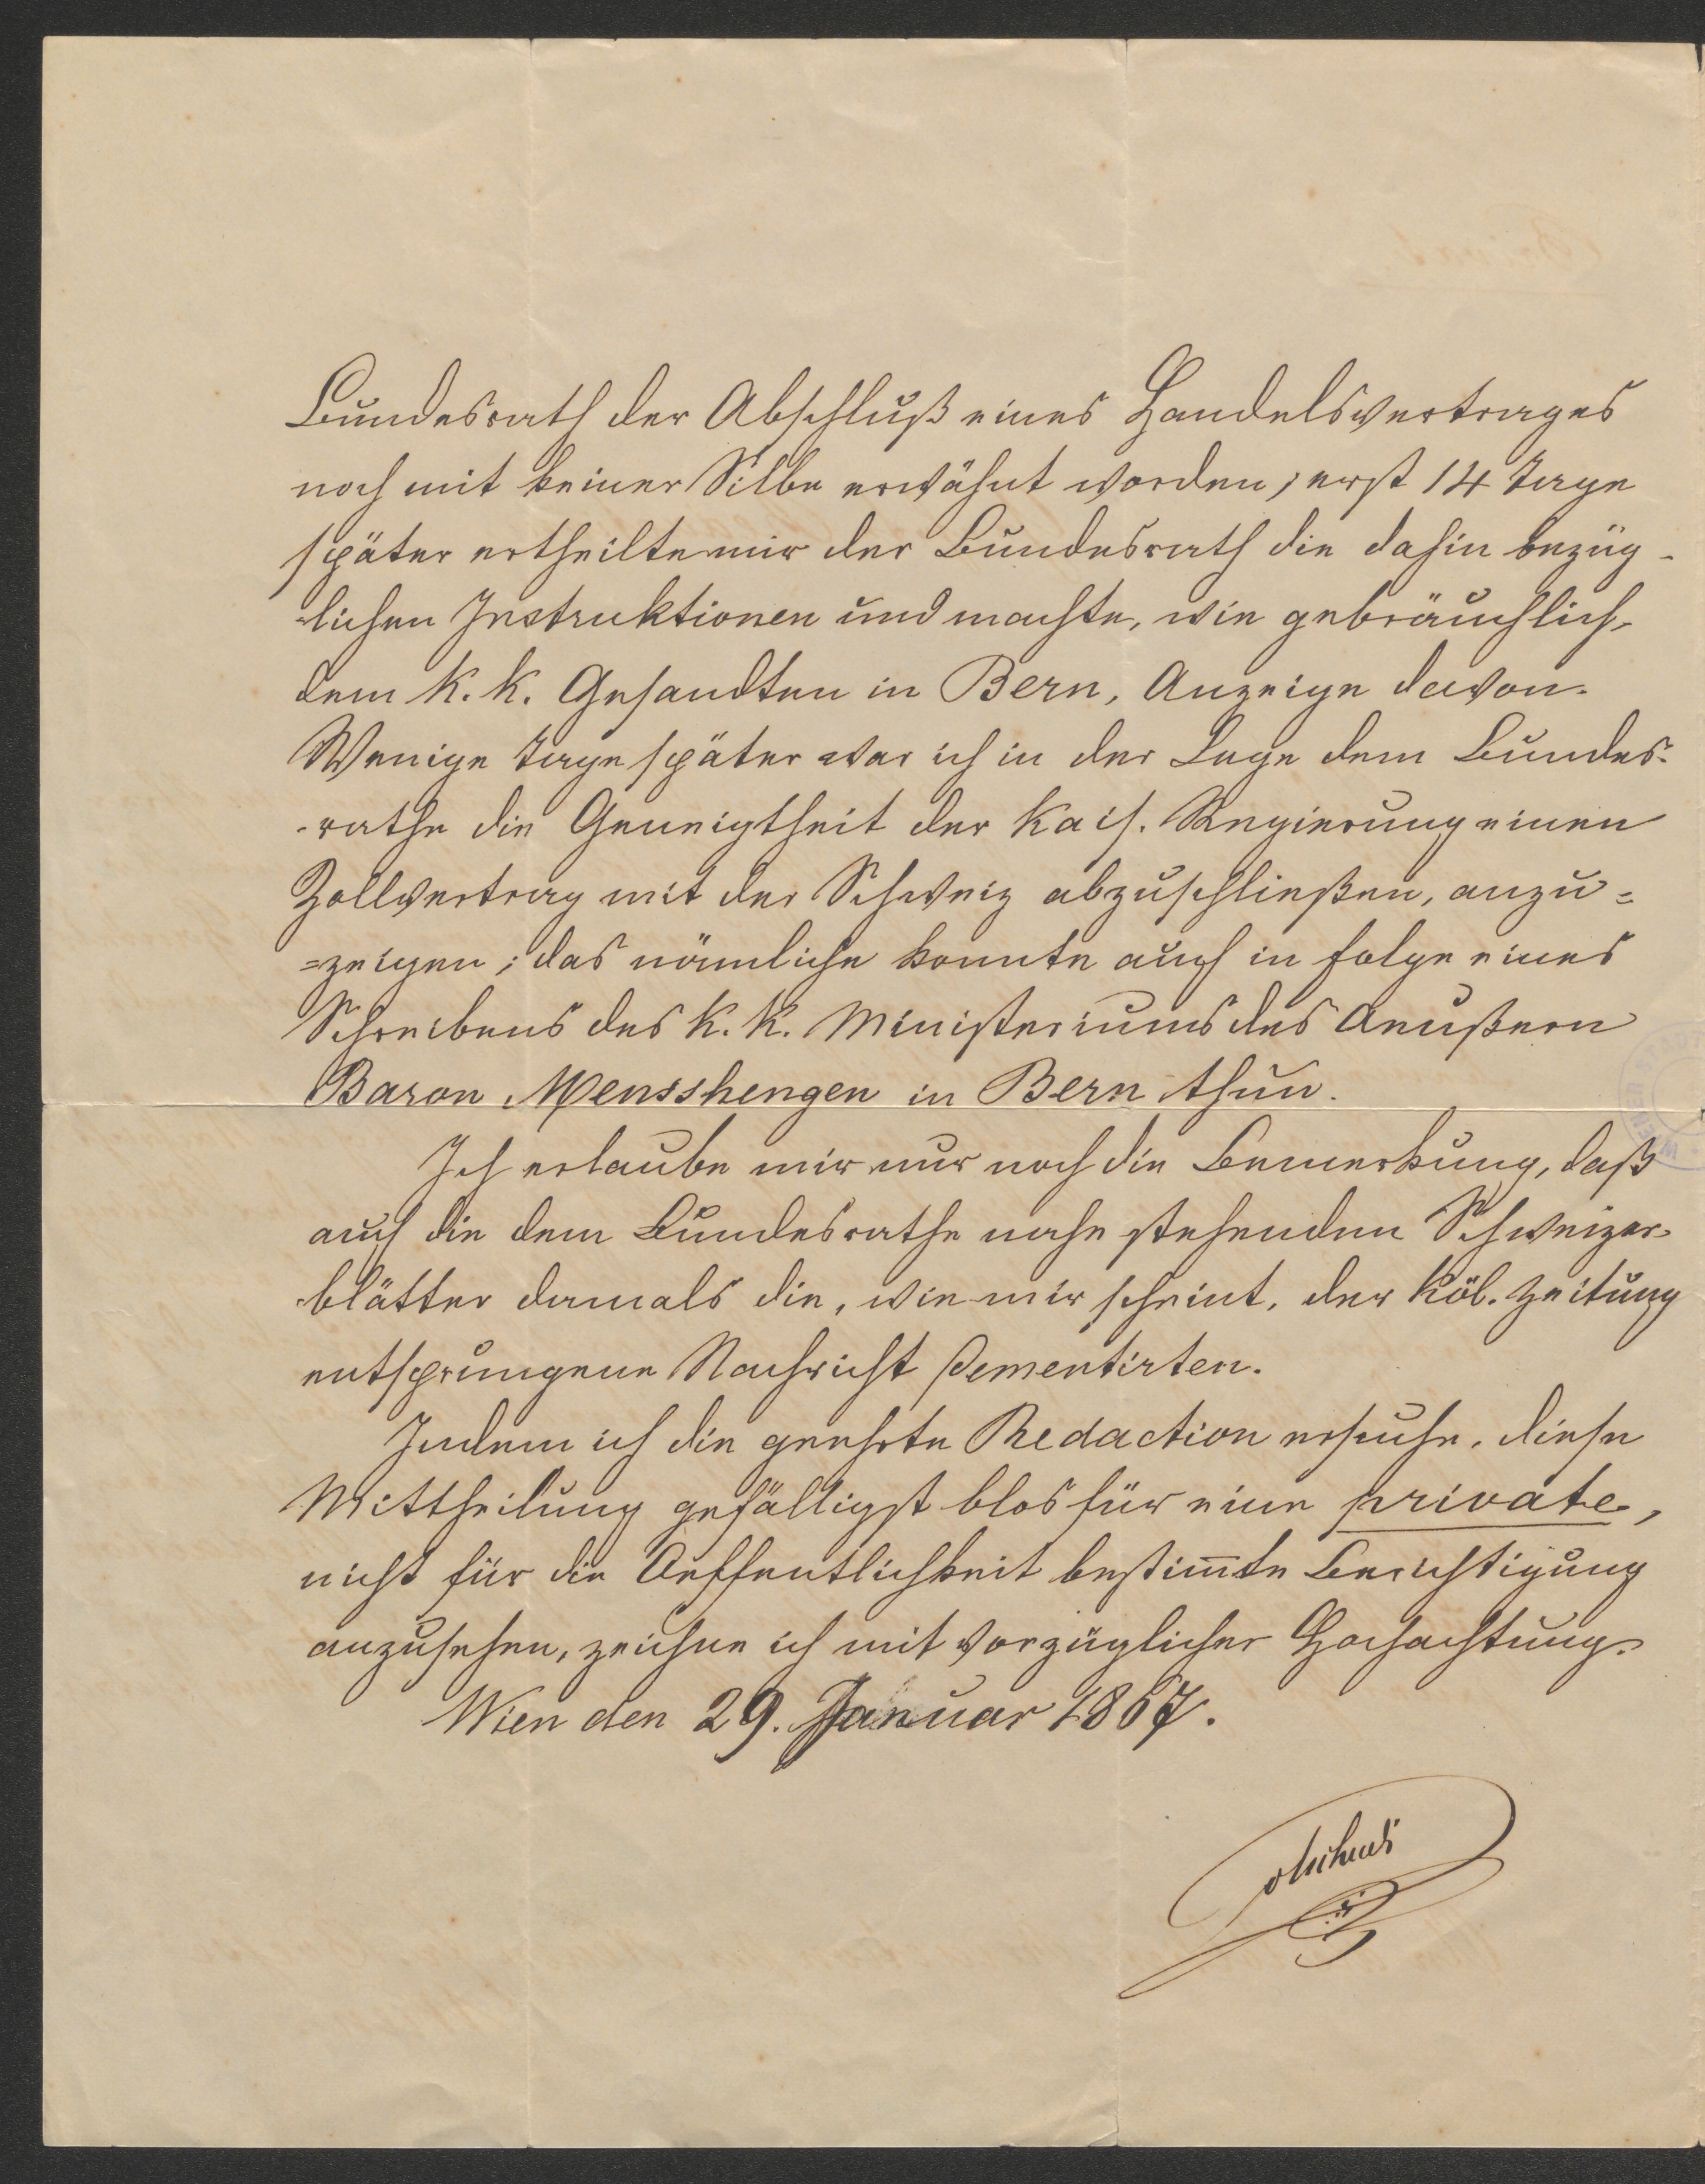 Bundesrath der Abschluß eines Handelsvertrages
noch mit keiner Silbe erwähnt worden; erst 14 Tage
später ertheilte mir der Bundesrath die dahin bezüg-
-lichen Instruktionen und machte, wie gebräuchlich,
dem K. K. Gesandten in Bern, Anzeige davon.
Wenige Tage später war ich in der Lage dem Bundes-
-rathe die Geneigtheit der Kais. Regierung einen
Zollvertrag mit der Schweiz abzuschließen, anzu=
=zeigen; das nämliche konnte auch in folge eines
Schreibens des K. K. Ministeriums des Aeußern
Baron Mensshengen in Bern thun.
Ich erlaube mir nur noch die Bemerkung, daß
auch die dem Bundesrathe nahe stehenden Schweizer-
-blätter damals die, wie mir scheint, der Köl. Zeitung
entsprungene Nachricht dementirten.
Indem ich die geehrte Redaction ersuche, diese
Mittheilung gefälligst blos für eine private,
nicht für die Oeffentlichkeit bestim̅te Berichtigung
anzusehen, zeichne ich mit vorzüglicher Hochachtung.
Wien den 29. Januar 1867.